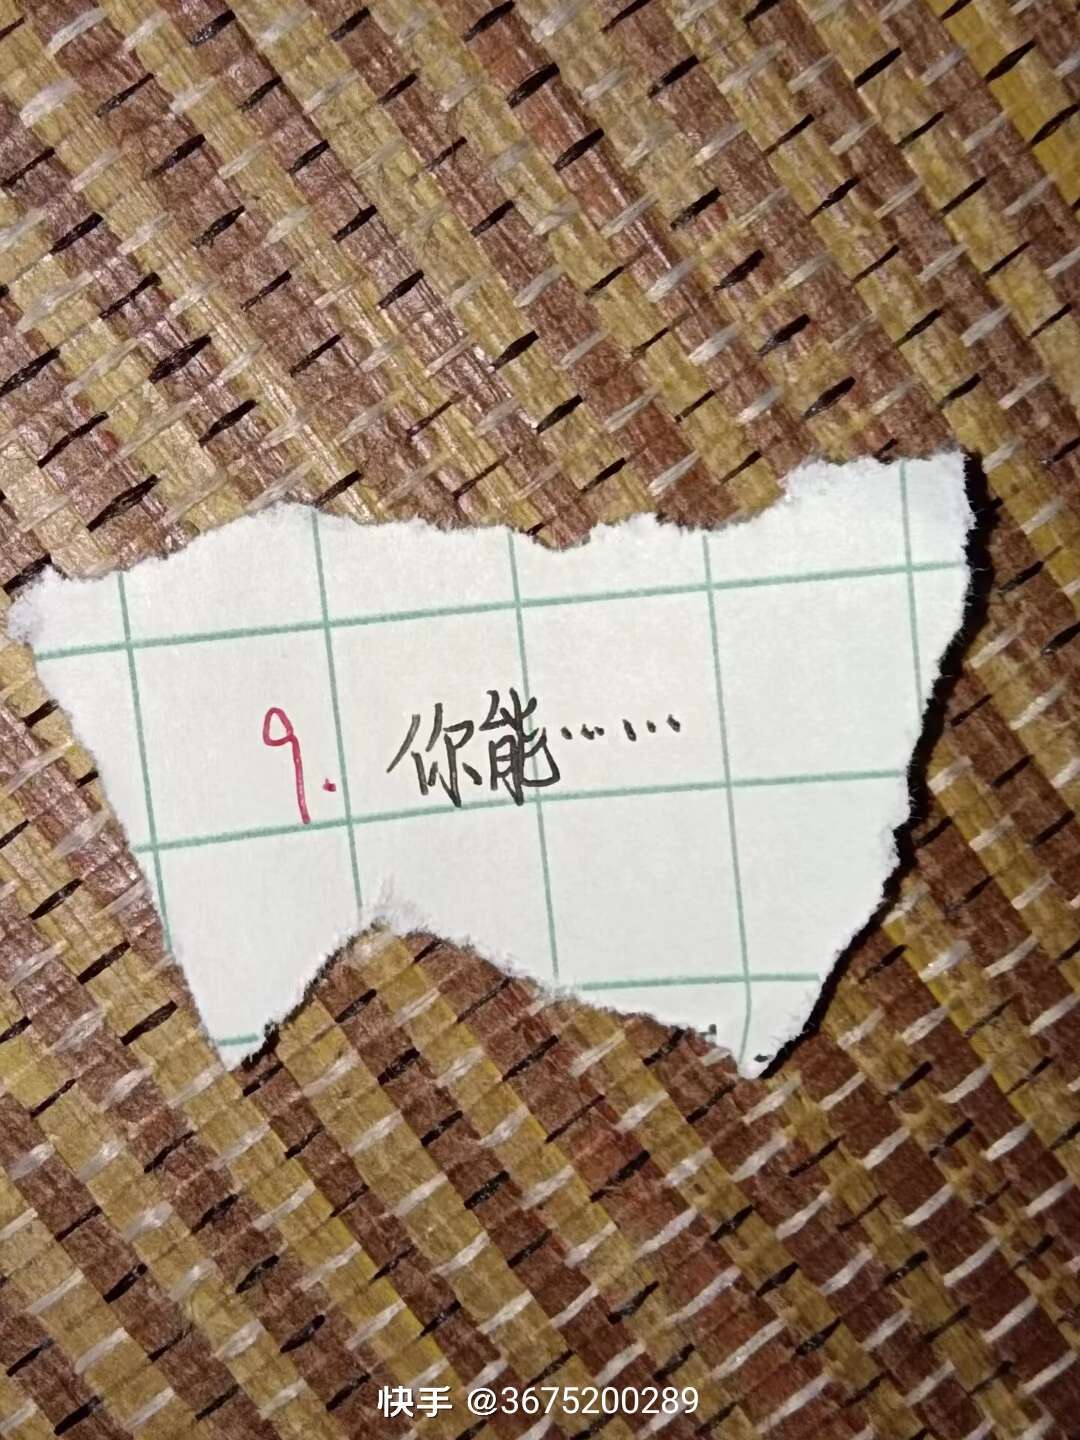 9. 你能……
快手 @3675200289